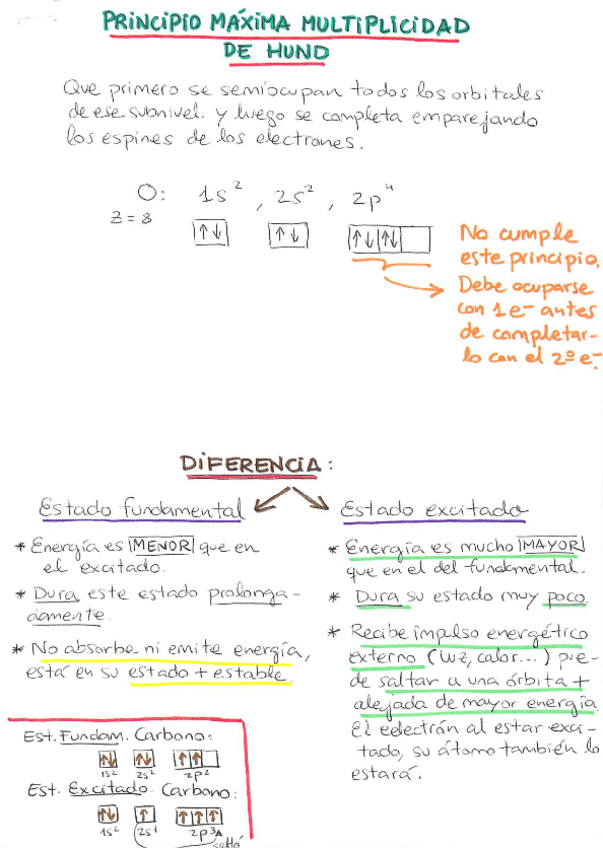 PRINCIPIO MÁXIMA MULTIPLICIDAD
DE HUND
Que primero se semiocupan todos los orbitales
de ese subnivel. y luego se completa emparejando
los espines de los electrones.
O: 1s², 2s², 2p⁴
Z = 8
↑↓ ↑↓ ↑↓ ↑↓
No cumple
este principio.
Debe ocuparse
con 1 e⁻ antes
de completar-
lo con el 2º e⁻
DIFERENCIA:
Estado fundamental
* Energía es MENOR que en
el excitado.
* Dura este estado prolonga-
damente.
* No absorbe ni emite energía,
está en su estado + estable.
Estado excitado
* Energía es mucho MAYOR
que en el del fundamental.
* Dura su estado muy poco.
* Recibe impulso energético
externo (luz, calor...) pue-
de saltar a una órbita +
alejada de mayor energía.
El eelectrón al estar exci-
tado, su átomo también lo
estará.
Est. Fundam. Carbono:
↑↓ ↑↓ ↑ ↑
1s² 2s² 2p²
Est. Excitado. Carbono:
↑↓ ↑ ↑ ↑ ↑
1s² 2s¹ 2p³
saltó